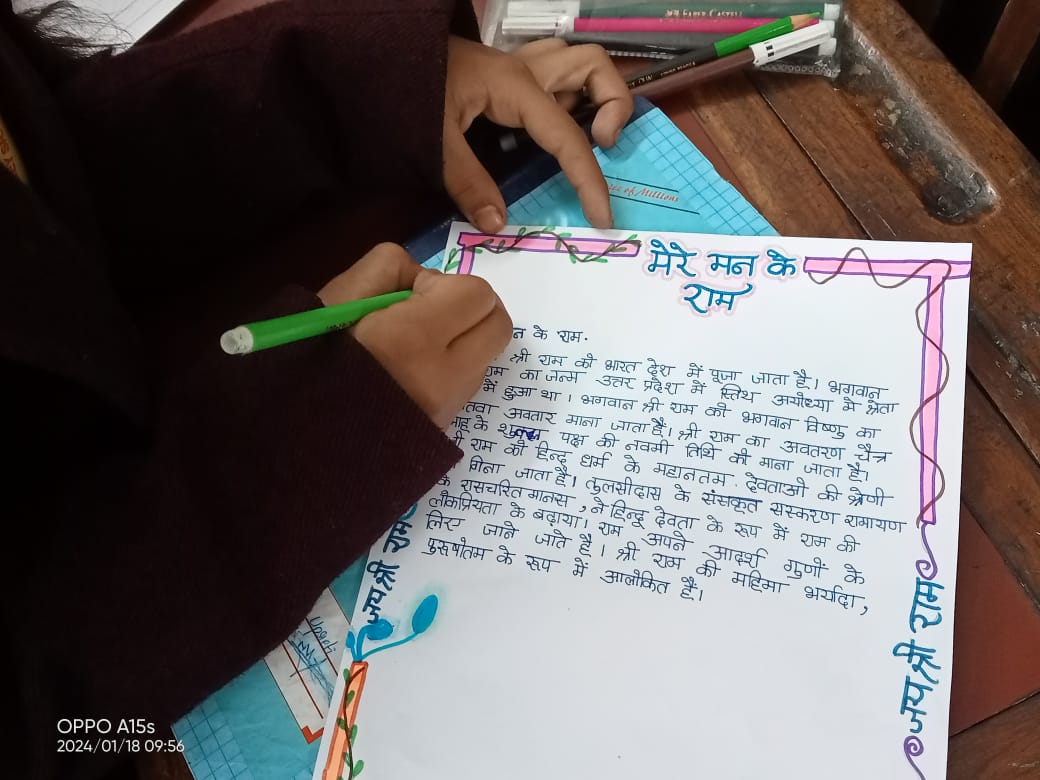 FABER CASTELL
of Millions
मेरे मन के
राम
न के राम.
श्री राम को भारत देश में पूजा जाता है। भगवान
राम का जन्म उत्तर प्रदेश में स्तिथ अयोध्या मे त्रेता
में हुआ था। भगवान श्री राम को भगवान विष्णु का
तवा अवतार माना जाता है। श्री राम का अवतरण चैत्र
माह के शुक्ल पक्ष की नवमी तिथि को माना जाता है।
राम को हिन्दू धर्म के महानतम देवताओ की श्रेणी
गिना जाता है। तुलसीदास के संस्कृत संस्करण रामायण
के रासचरितमानस, ने हिन्दू देवता के रूप में राम की
लोकप्रियता के बढ़ाया। राम अपने आदर्श गुणों के
लिए जाने जाते है। श्री राम की महिमा मर्यादा,
पुरूषोतम के रूप में आलोकित है।
जय श्री राम
जय श्री राम
OPPO A15s
2024/01/18 09:56